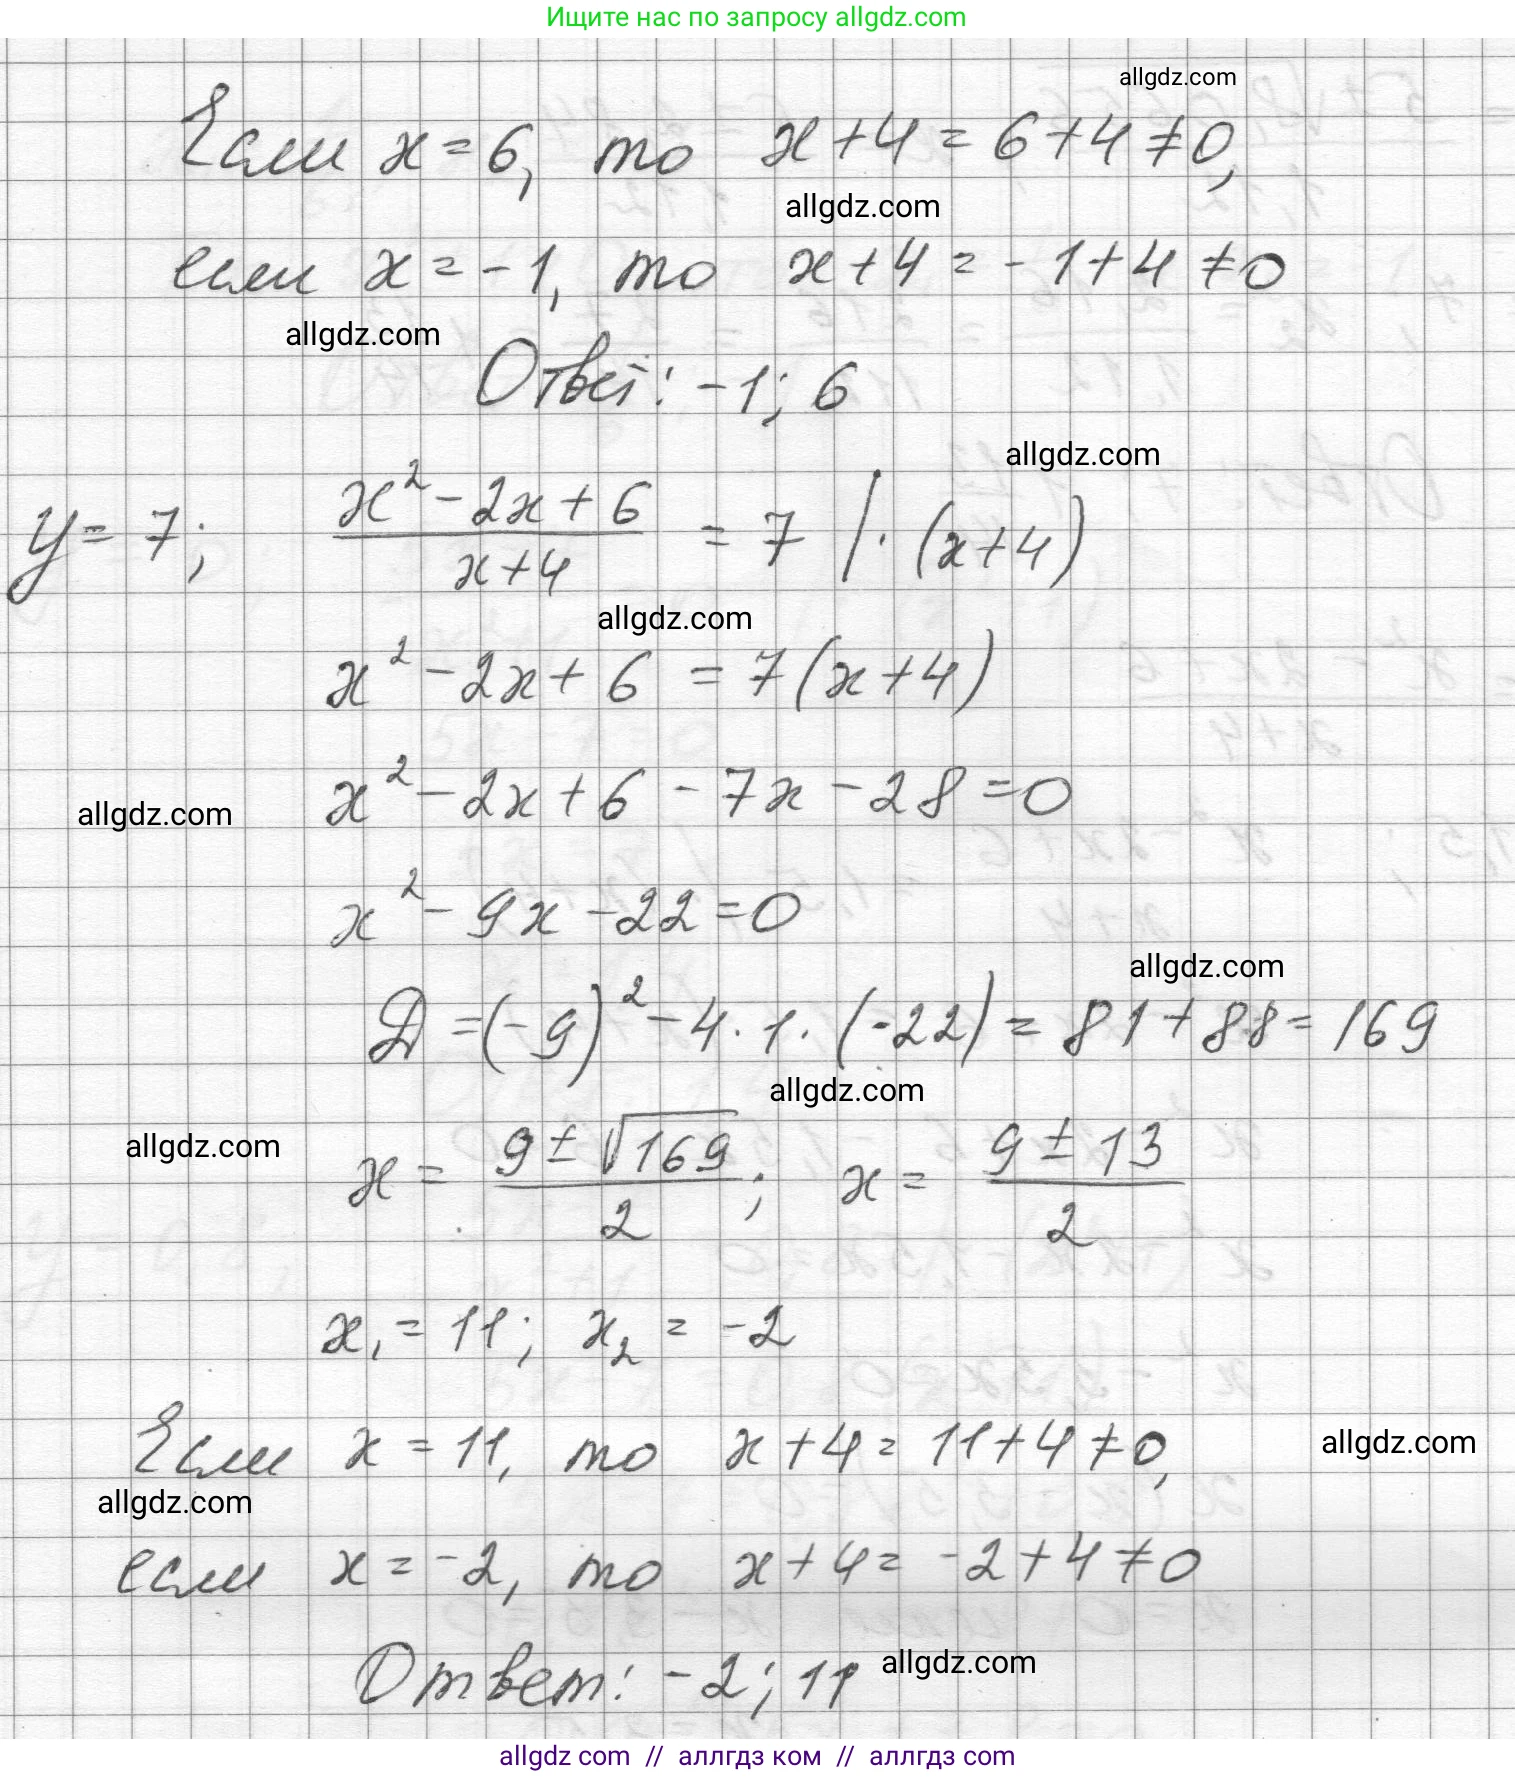 Ищите нас по запросу allgdz.com
allgdz.com
Если x = 6, то x + 4 = 6 + 4 ≠ 0,
allgdz.com
если x = -1, то x + 4 = -1 + 4 ≠ 0
allgdz.com
Ответ: -1; 6
allgdz.com
y = 7; (x² - 2x + 6)/(x + 4) = 7 | · (x + 4)
allgdz.com
x² - 2x + 6 = 7(x + 4)
x² - 2x + 6 - 7x - 28 = 0
allgdz.com
x² - 9x - 22 = 0
allgdz.com
Д = (-9)² - 4 · 1 · (-22) = 81 + 88 = 169
allgdz.com
allgdz.com
x = (9 ± √169)/2; x = (9 ± 13)/2
x₁ = 11; x₂ = -2
Если x = 11, то x + 4 = 11 + 4 ≠ 0,
allgdz.com
allgdz.com
если x = -2, то x + 4 = -2 + 4 ≠ 0
Ответ: -2; 11
allgdz.com
allgdz com // аллгдз ком // аллгдз com